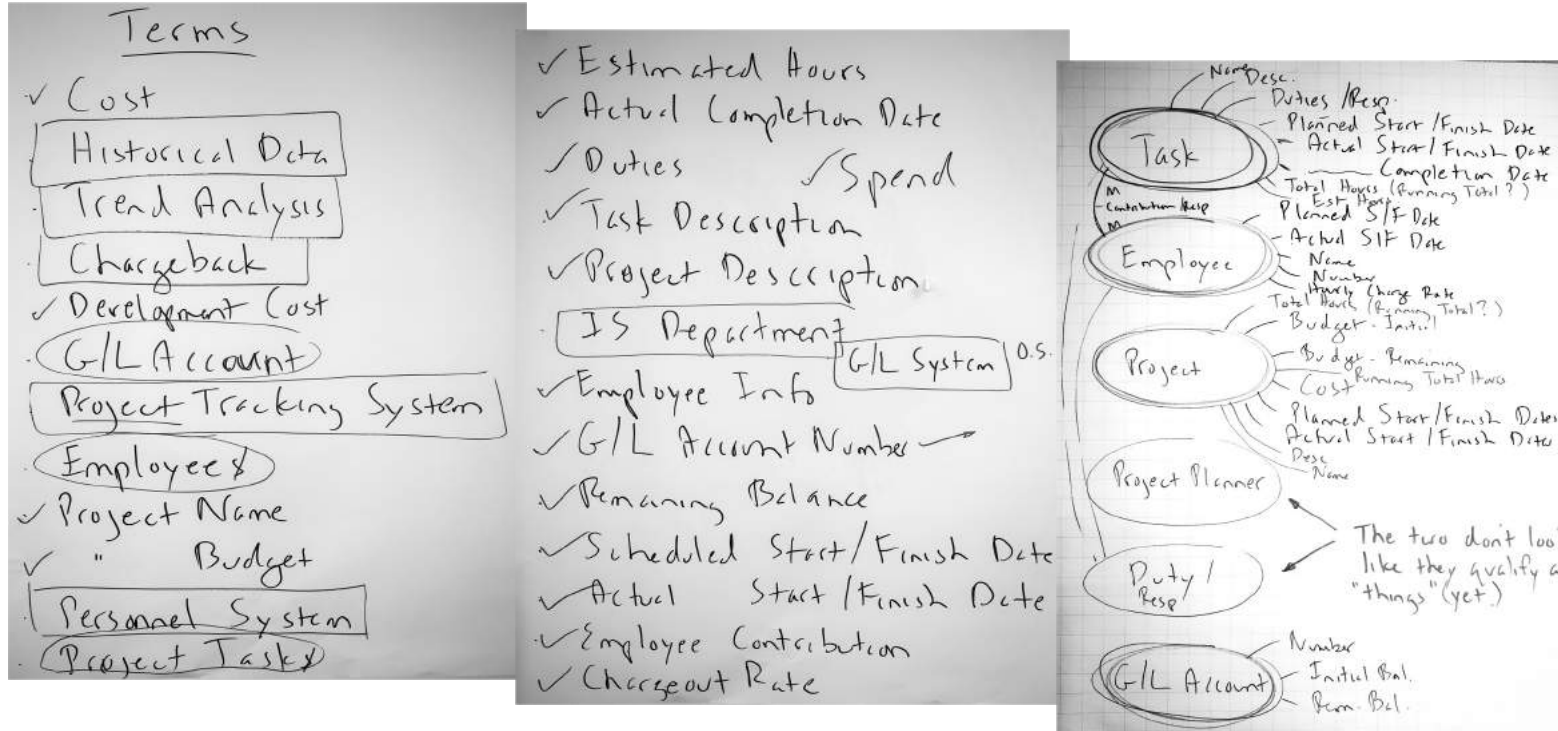 Terms
✓ Cost
Historical Data
Trend Analysis
Chargeback
✓ Development Cost
G/L Account
Project Tracking System
Employees
✓ Project Name
✓ " Budget
Personnel System
Project Tasks
✓ Estimated Hours
✓ Actual Completion Date
✓ Duties
✓ Spend
✓ Task Description
✓ Project Description
IS Department
G/L System O.S.
✓ Employee Info
✓ G/L Account Number →
✓ Remaining Balance
✓ Scheduled Start/Finish Date
✓ Actual Start/Finish Date
✓ Employee Contribution
✓ Chargeout Rate
Task
Name
Desc.
Duties/Resp.
Planned Start/Finish Date
Actual Start/Finish Date
Completion Date
Total Hours (Running Total?)
Est Hours
M
Contribution/Resp
M
Employee
Planned S/F Date
Actual S/F Date
Name
Number
Hourly Charge Rate
Project
Total Hours (Running Total?)
Budget - Initial
Budget - Remaining
Running Total Hours
Cost
Planned Start/Finish Dates
Actual Start/Finish Dates
Desc
Name
Project Planner
Duty/
Resp
The two don't loo
like they qualify a
"things" (yet)
G/L Account
Number
Initial Bal.
Rem. Bal.